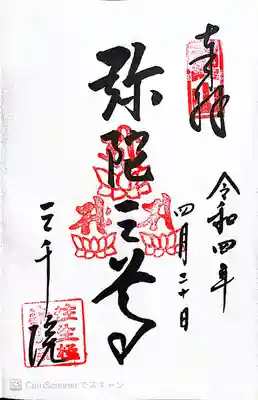 奉拝
令和四年
四月二十日
弥陀三尊
三千院
往生極
CamScannerでスキャン